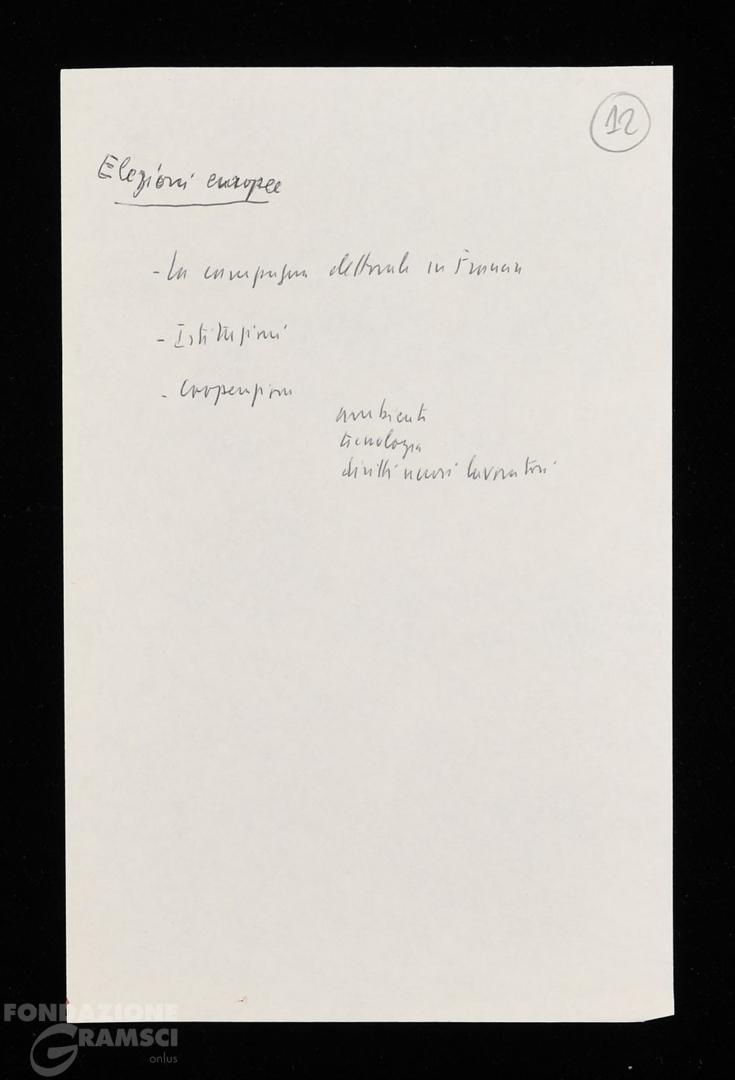 12
Elezioni europee
- La campagna elettorale in Francia
- Istituzioni
- Cooperazione
ambiente
tecnologia
diritti nuovi lavoratori
FONDAZIONE
GRAMSCI
onlus